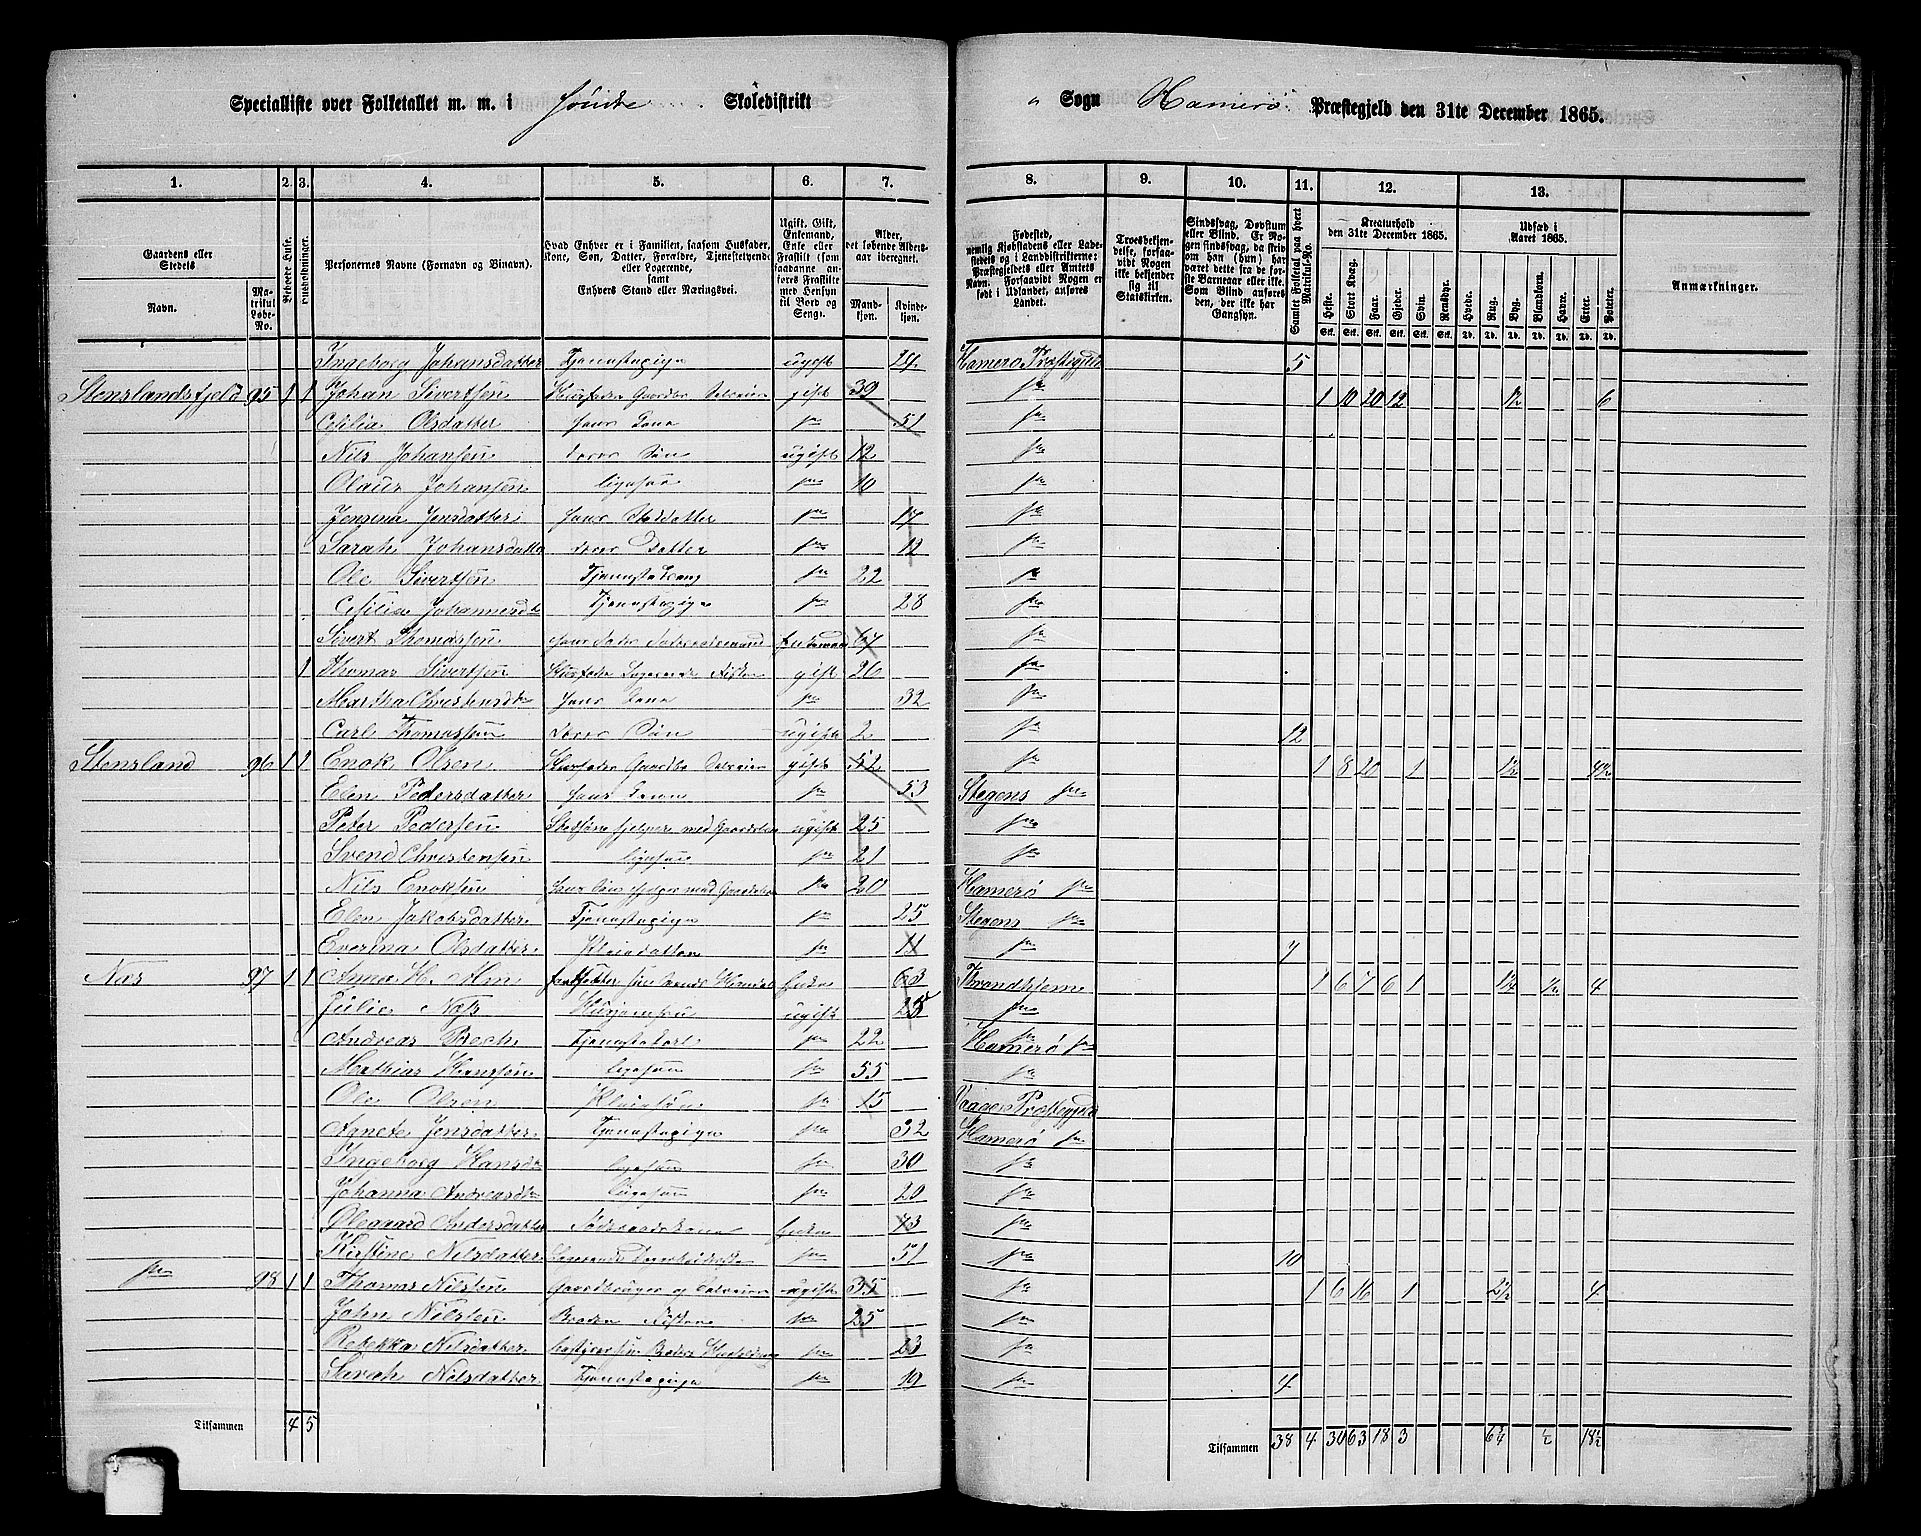 Specialliste over Folketallet m. m. i Skoledistrikt
" Sogn Hamerø Præstegjeld den 31te December 1865.
1. 2. 3. 4. 5. 6. 7. 8. 9. 10. 11. 12. 13.
Gaardens eller Stedets
Navn. Matrikul Løbe-No.
Beboede Huse.
Husholdninger.
Personernes Navne (Fornavn og Binavn).
Hvad Enhver er i Familien, saasom Husfader, Kone, Søn, Datter, Forældre, Tjenestetyende eller Logerende, samt Enhvers Stand eller Næringsvei.
Ugift, Gift, Enkemand, Enke eller Fraskilt (som saadanne anføres Fraskilte med Hensyn til Bord og Seng).
Alder, det løbende Aldersaar iberegnet.
Mandkjøn. Kvindekjøn.
Fødested, nemlig Kjøbstadens eller Ladestedets og i Landdistrikterne: Præstegjeldets eller Amtets Navn. Forsaavidt Nogen er født i Udlandet, anføres Landet.
Troesbekjendelse, forsaavidt Nogen ikke bekjender sig til Statskirken.
Sindssvag, Døvstum eller Blind. Er Nogen sindssvag, da skrives om han (hun) har været dette fra de første Barneaar eller ikke. Som Blind anføres den, der ikke har Gangsyn.
Samlet Folketal paa hvert Matrikul-No.
Kreaturhold den 31te December 1865.
Heste. Stort Kvæg. Faar. Gjeder. Svin. Rensdyr.
Udsæd i Aaret 1865.
Hvede. Rug. Byg. Blandkorn. Havre. Erter. Poteter.
Anmærkninger.
Ingeborg Johansdatter Tjenestepige ugift 24 Hamerø Præstegjeld 5
Stenslandsfjeld 95 1 1 Johan Sivertsen Husfader Gaardbr Selveier gift 39 do 1 10 20 12 1½ 6
Cesilia Olsdatter hans Kone do 51 do
Nils Johansen deres Søn ugift 12 do
Olaus Johansen ligesaa do 10 do
Jensina Jensdatter hans Steddatter do 17 do
Sarah Johansdatter deres Datter do 12 do
Ole Sivertsen Tjenestedreng do 22 do
Cesilia Johannesdtr Tjenestepige do 28 do
Sivert Thomassen hans Fader Enkemand 67 do
1 Thomas Sivertsen Husfader Logerende Fisker gift 26 do
Martha Christensdtr hans Kone do 32 do
Carl Thomassen deres Søn ugift 2 do 12
Stensland 96 1 1 Enok Olsen Husfader Gaardbr Selveier gift 52 do 1 8 20 1 1½ 4½
Elen Pedersdatter hans Kone do 53 Stegens do
Peter Pedersen Stedsøn hjelper med Gaardsbr ugift 25 do
Svend Christensen ligesaa do 21 do
Nils Enoksen hans Søn hjelper med Gaardsbr do 20 Hamerø do
Elen Jakobsdatter Tjenestepige do 25 Stegens do
Everina Olsdatter Pleiedatter do 11 do 7
Næs 97 1 1 Anna H. Alm Enke 63 Trondhjem 1 6 7 6 1 1½ ½ 4
Julie Næss ugift 25 do
Andreas Bech Tjenestekarl do 22 Hamerø do
Mathias Hansen ligesaa do 55 do
Ole Olsen Pleiesøn do 15 Vaage Præstegjeld
Agnete Jensdatter Tjenestepige do 32 Hamerø do
Ingeborg Hansdtr ligesaa do 30 do
Johanna Andreasdtr ligesaa do 20 do
Olegaard Andersdatter Føderaadskone Enke 73 do
Kirstine Nilsdatter do 51 do 10
do 98 1 1 Thomas Nilsen Gaardbruger og Selveier ugift 35 do 1 6 16 1 2½ 4
John Nilsen Broder Fisker do 25 do
Rebekka Nilsdatter do 23 do
Sivert Nilsdatter Tjenestepige do 19 do 4
Tilsammen 4 5
Tilsammen 38 4 30 63 18 3 6¾ ½ 18½